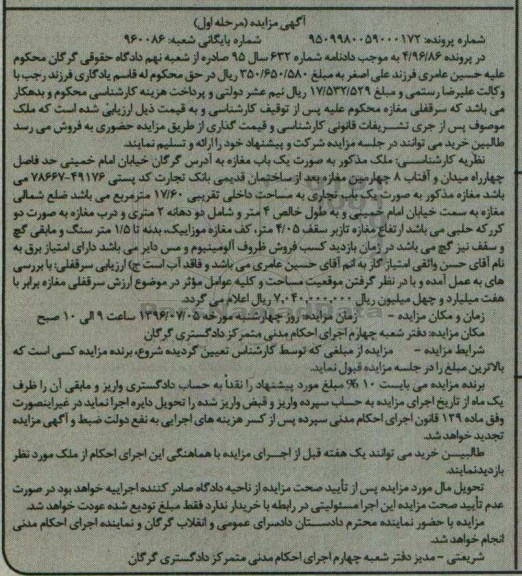 آگهی مزایده (مرحله اول)
شماره پرونده: ۹۵۰۹۹۸۰۰۵۹۰۰۰۱۷۲ شماره بایگانی شعبه: ۹۶۰۰۸۶
در پرونده ۴/۹۶/۸۶ به موجب دادنامه شماره ۶۳۲ سال ۹۵ صادره از شعبه نهم دادگاه حقوقی گرگان محکوم
علیه حسین عامری فرزند علی اصغر به مبلغ ۳۵۰/۶۵۰/۵۸۰ ریال در حق محکوم له قاسم یادگاری فرزند رجب با
وکالت علیرضا رستمی و مبلغ ۱۷/۵۳۲/۵۲۹ ریال نیم عشر دولتی و پرداخت هزینه کارشناسی محکوم و بدهکار
می باشد که سرقفلی مغازه محکوم علیه پس از توقیف کارشناسی و به قیمت ذیل ارزیابی شده است که ملک
موصوف پس از جری تشریفات قانونی کارشناسی و قیمت گذاری از طریق مزایده حضوری به فروش می رسد
طالبین خرید می توانند در جلسه مزایده شرکت و پیشنهاد خود را ارائه و تسلیم نمایند.
نظریه کارشناسی: ملک مذکور به صورت یک باب مغازه به آدرس گرگان خیابان امام خمینی حد فاصل
چهارراه میدان و آفتاب ۸ چهارمین مغازه بعد از ساختمان قدیمی بانک تجارت کد پستی ۴۹۱۷۶-۷۸۶۶۷ می
باشد مغازه مذکور به صورت یک باب تجاری به مساحت داخلی تقریبی ۱۷/۶۰ مترمربع می باشد ضلع شمالی
مغازه به سمت خیابان امام خمینی و به طول خالص ۴ متر و شامل دو دهانه ۲ متری و درب مغازه به صورت دو
کرکره حلبی می باشد ارتفاع مغازه تا زیر سقف ۴/۰۵ متر، کف مغازه موزاییک، بدنه تا ۱/۵ متر سنگ و مابقی گچ
و سقف نیز گچ می باشد در زمان بازدید کسب فروش ظروف آلومینیوم و مس دایر می باشد دارای امتیاز برق به
نام آقای حسن واثقی امتیاز گاز به اسم آقای حسین عامری می باشد و فاقد آب است ج) ارزیابی سرقفلی: با بررسی
های به عمل آمده و با در نظر گرفتن موقعیت مساحت و کلیه عوامل مؤثر در موضوع ارزش سرقفلی مغازه برابر با
هفت میلیارد و چهل میلیون ریال ۷,۰۴۰,۰۰۰,۰۰۰ ریال اعلام می گردد.
زمان و مکان مزایده - زمان مزایده: روز چهارشنبه مورخه ۱۳۹۶/۰۷/۰۵ ساعت ۹ الی ۱۰ صبح
مکان مزایده: دفتر شعبه چهارم اجرای احکام مدنی متمرکز دادگستری گرگان
شرایط مزایده - مزایده از مبلغی که توسط کارشناس تعیین گردیده شروع، برنده مزایده کسی است که
بالاترین مبلغ را در جلسه مزایده قبول نماید.
برنده مزایده می بایست ۱۰ % مبلغ مورد پیشنهاد را نقداً به حساب دادگستری واریز و مابقی آن را ظرف
یک ماه از تاریخ اجرای مزایده به حساب سپرده واریز و قبض واریز شده را تحویل دایره اجرا نماید در غیراینصورت
وفق ماده ۱۲۹ قانون اجرای احکام مدنی سپرده پس از کسر هزینه های اجرایی به نفع دولت ضبط و آگهی مزایده
تجدید خواهد شد.
طالبین خرید می توانند یک هفته قبل از اجرای مزایده با هماهنگی این اجرای احکام از ملک مورد نظر
بازدید نمایند.
تحویل مال مورد مزایده پس از تأیید صحت مزایده از ناحیه دادگاه صادر کننده اجراییه خواهد بود در صورت
عدم تأیید صحت مزایده این اجرا مسئولیتی در رابطه با خریدار ندارد فقط مبلغ تودیع شده عودت خواهد شد.
مزایده با حضور نماینده محترم دادستان دادسرای عمومی و انقلاب گرگان و نماینده اجرای احکام مدنی
انجام خواهد شد.
شریعتی - مدیر دفتر شعبه چهارم اجرای احکام مدنی متمرکز دادگستری گرگان